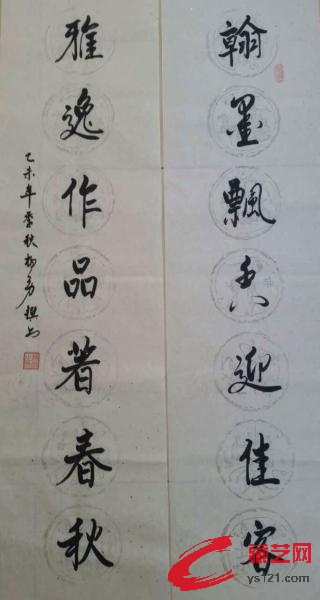 翰墨飘香迎佳客
雅逸作品著春秋
乙未年季秋杨勇撰书
ys121.com